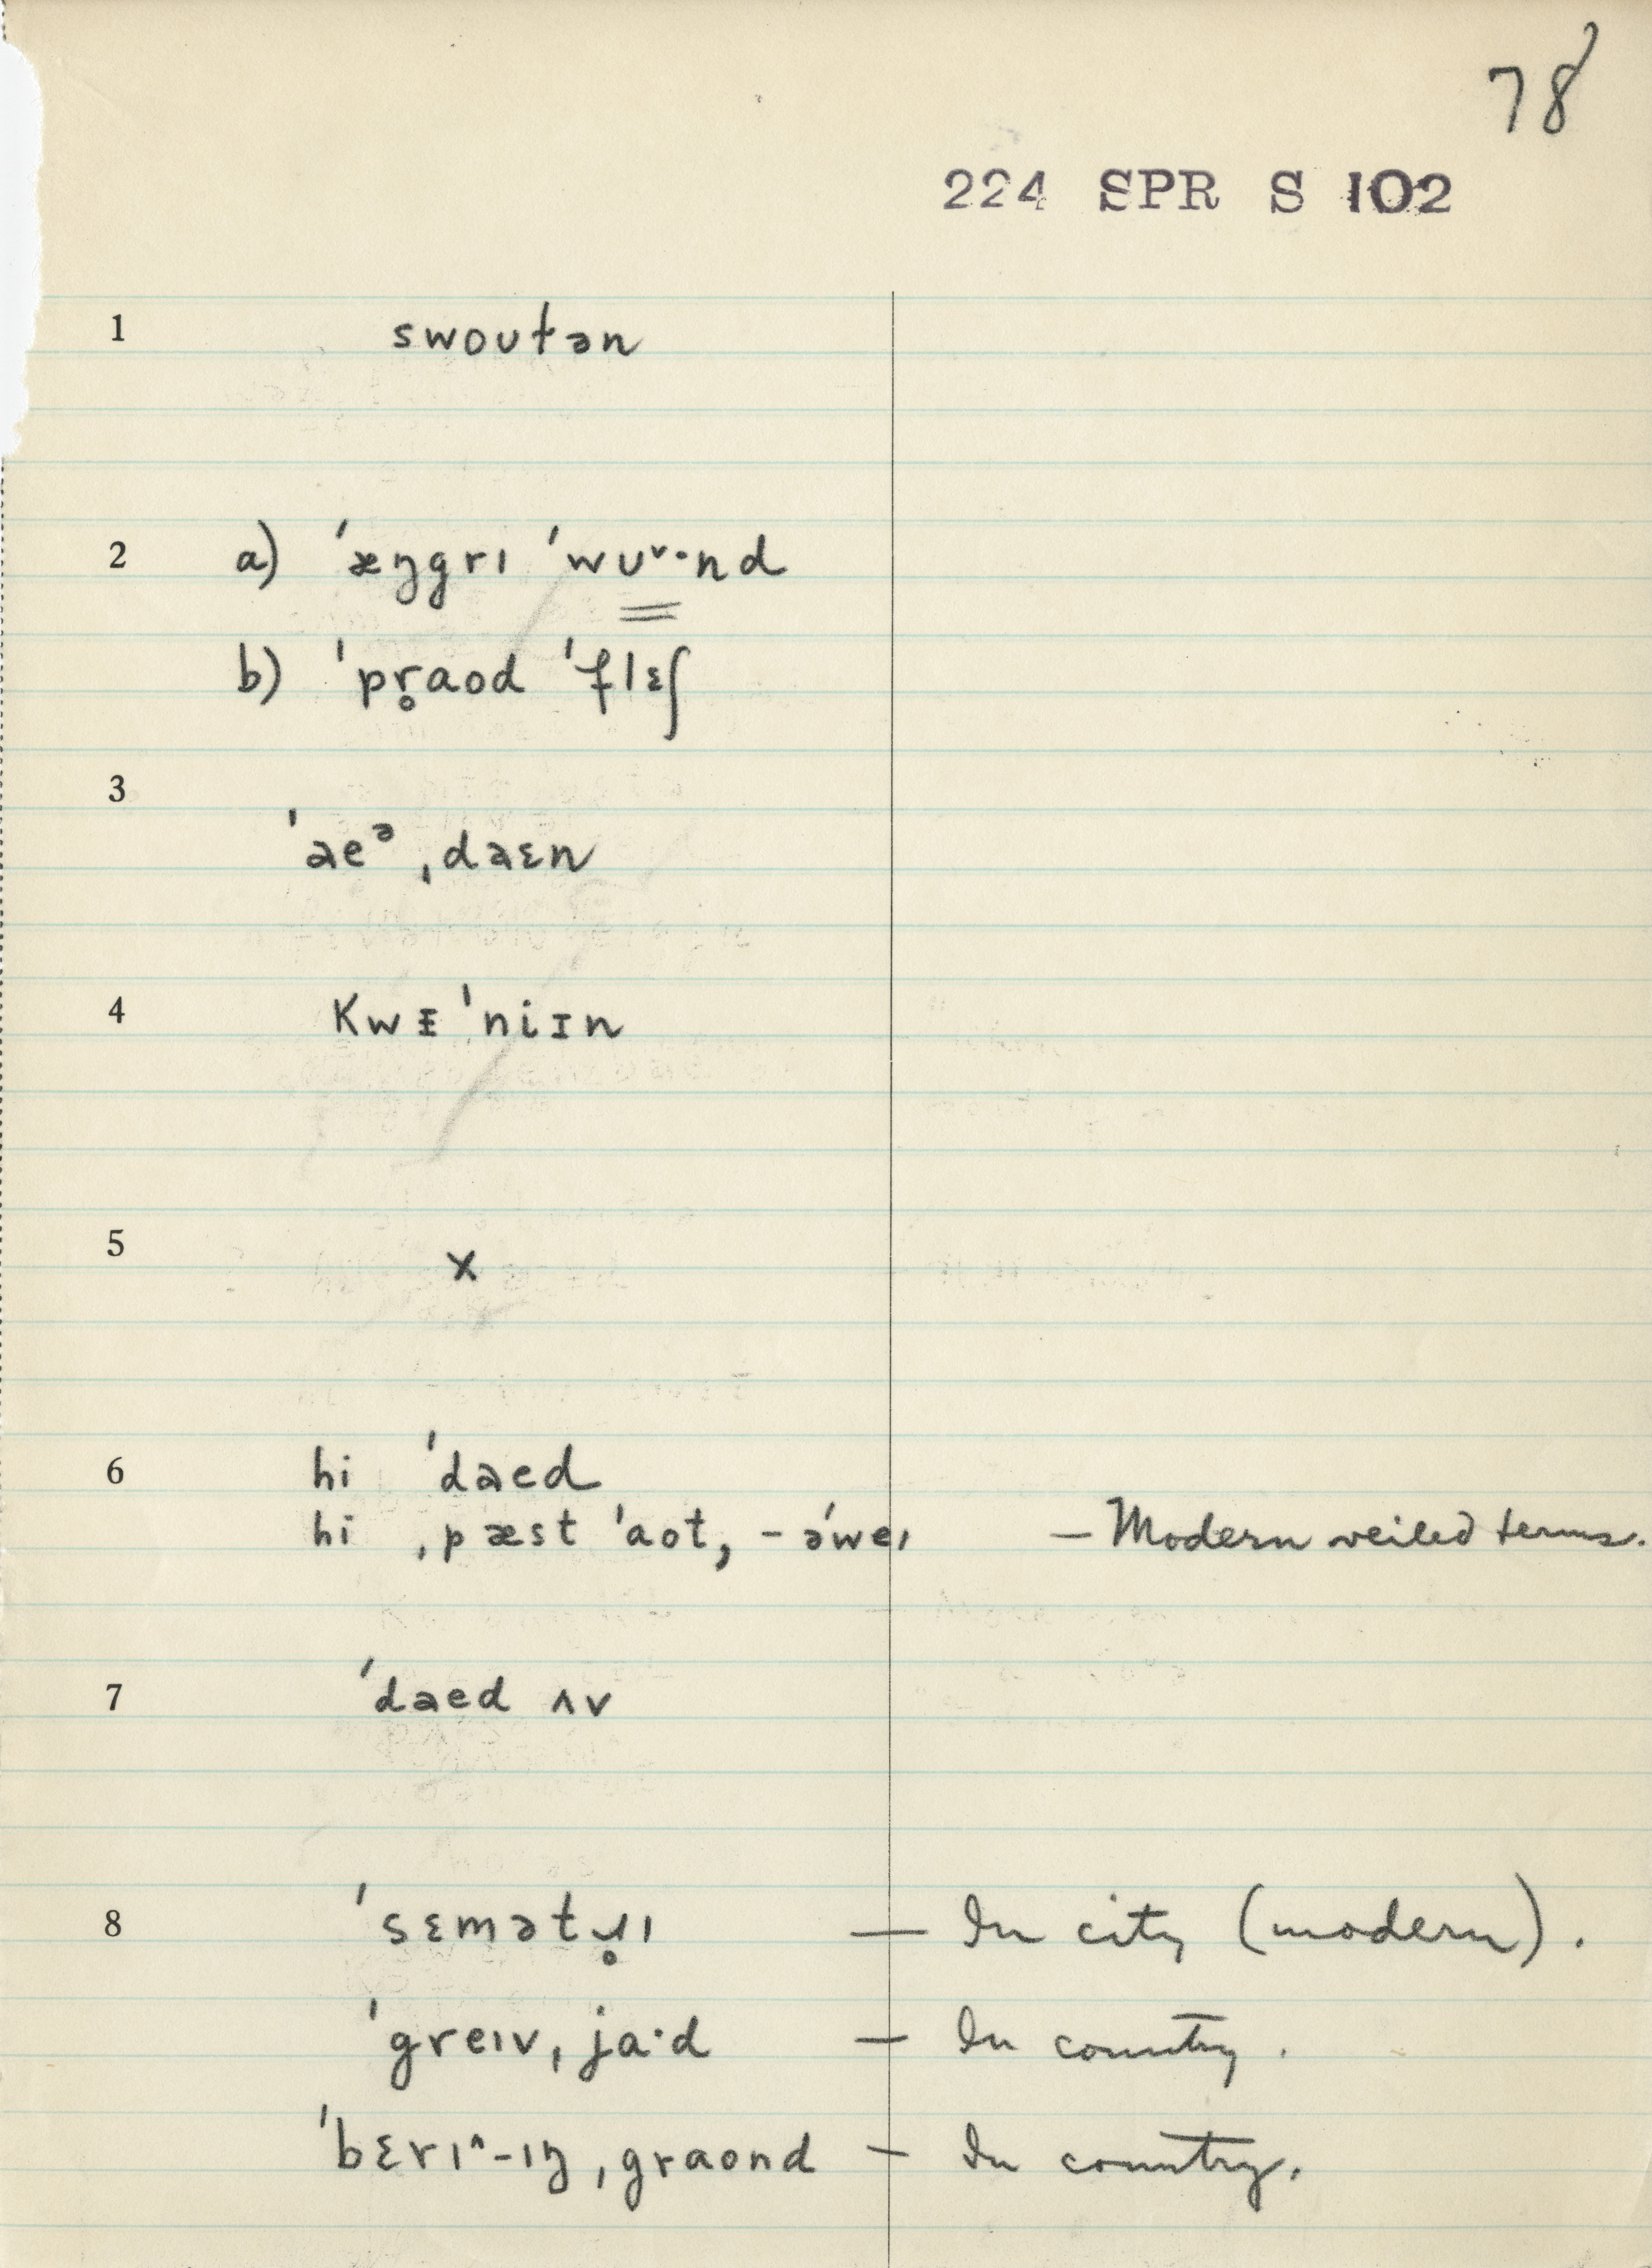 78
224 SPR S 102
1 swoutən
2 a) ˈæŋgrɪ ˈwʊᵛ·nd
b) ˈpr̥aod ˈflɛʃ
3
ˈaeᵊ ˌdaɛn
4 kwᵻˈniɪn
5 x
6 hi ˈdaed
hi ˌpæst ˈaot, - əˈweɪ — Modern veiled terms.
7 ˈdaed ʌv
8 ˈsɛmətɹ̥ɪ — In city (modern).
ˈgreɪvˌja·d — In country.
ˈbɛrɪ^-ɪŋˌgraond — In country.